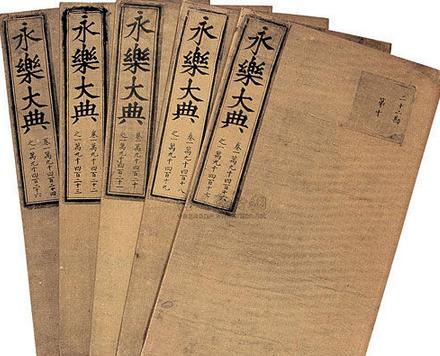 二十二勘
永樂大典
卷一萬九千四百十六
之一萬九千四百十七
永樂大典
卷一萬九千四百十八
之一萬九千四百十九
永樂大典
卷一萬九千四百二十
之一萬九千四百二十一
永樂大典
卷一萬九千四百二十二
之一萬九千四百二十三
永樂大典
卷一萬九千四百二十四
之一萬九千四百二十六